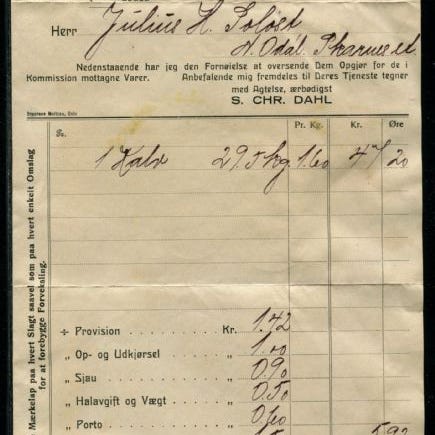 Herr Julius H. Soløst
N. Odal. Skarnes st
Nedenstaaende har jeg den Fornøielse at oversende Dem Opgjør for de i
Kommission mottagne Varer. Anbefalende mig fremdeles til Deres Tjeneste tegner
med Agtelse, ærbødigst
S. CHR. DAHL
Pr. Kg. Kr. Øre
1 Kalv 29.5 kg 1.60 47 20
Mærkelap paa hvert Slagt saavel som paa hvert enkelt Omslag
for at forebygge Forveksling.
÷ Provision Kr. 1.42
„ Op- og Utkjørsel „ 1.00
„ Sjau „ 0.90
„ Halavgift og Vægt „ 0.50
„ Porto „ 0.60
5.92